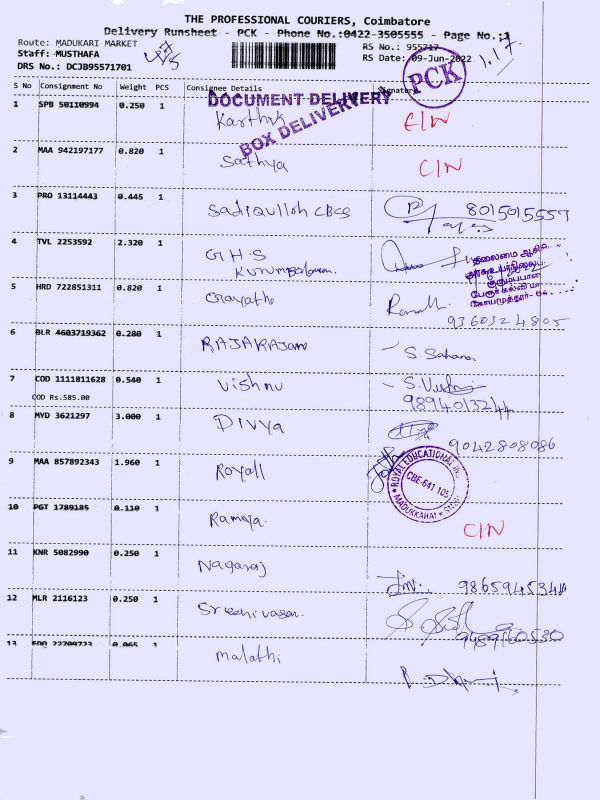 THE PROFESSIONAL COURIERS, Coimbatore
Delivery Runsheet - PCK - Phone No.:0422-3505555 - Page No.:1
Route: MADUKARI MARKET
Staff: MUSTHAFA
DRS No.: DCJB95571701
RS No.: 955717
RS Date: 09-Jun-2022
PCK
S No Consignment No Weight PCS Consignee Details Signature
DOCUMENT DELIVERY
BOX DELIVERY
1 SPB 50110994 0.250 1 Karthik CIN
2 MAA 942197177 0.820 1 Sathya CIN
3 PRO 13114443 0.445 1 Sadiqulloh CBCS 8015015557
4 TVL 2253592 2.320 1 G.H.S
தலைமை ஆசிரி
5 HRD 722851311 0.820 1 Gayathr
9360324805
6 BLR 4603719362 0.280 1 RAJARAJan S. Sahana
7 COD 1111811628 0.540 1 Vishnu
COD Rs.585.00 9894013244
8 MYD 3621297 3.000 1 DIVya 9042808086
9 MAA 857892343 1.960 1 Royall
ROYAL EDUCATIONAL
CBE-641 105
MADUKKARAI
10 PGT 1789185 0.110 1 Ramya CIN
11 KNR 5082990 0.250 1 Nagaraj 9865945344
12 MLR 2116123 0.250 1 Sreenivasan 9489160530
13 0.065 1 malathi